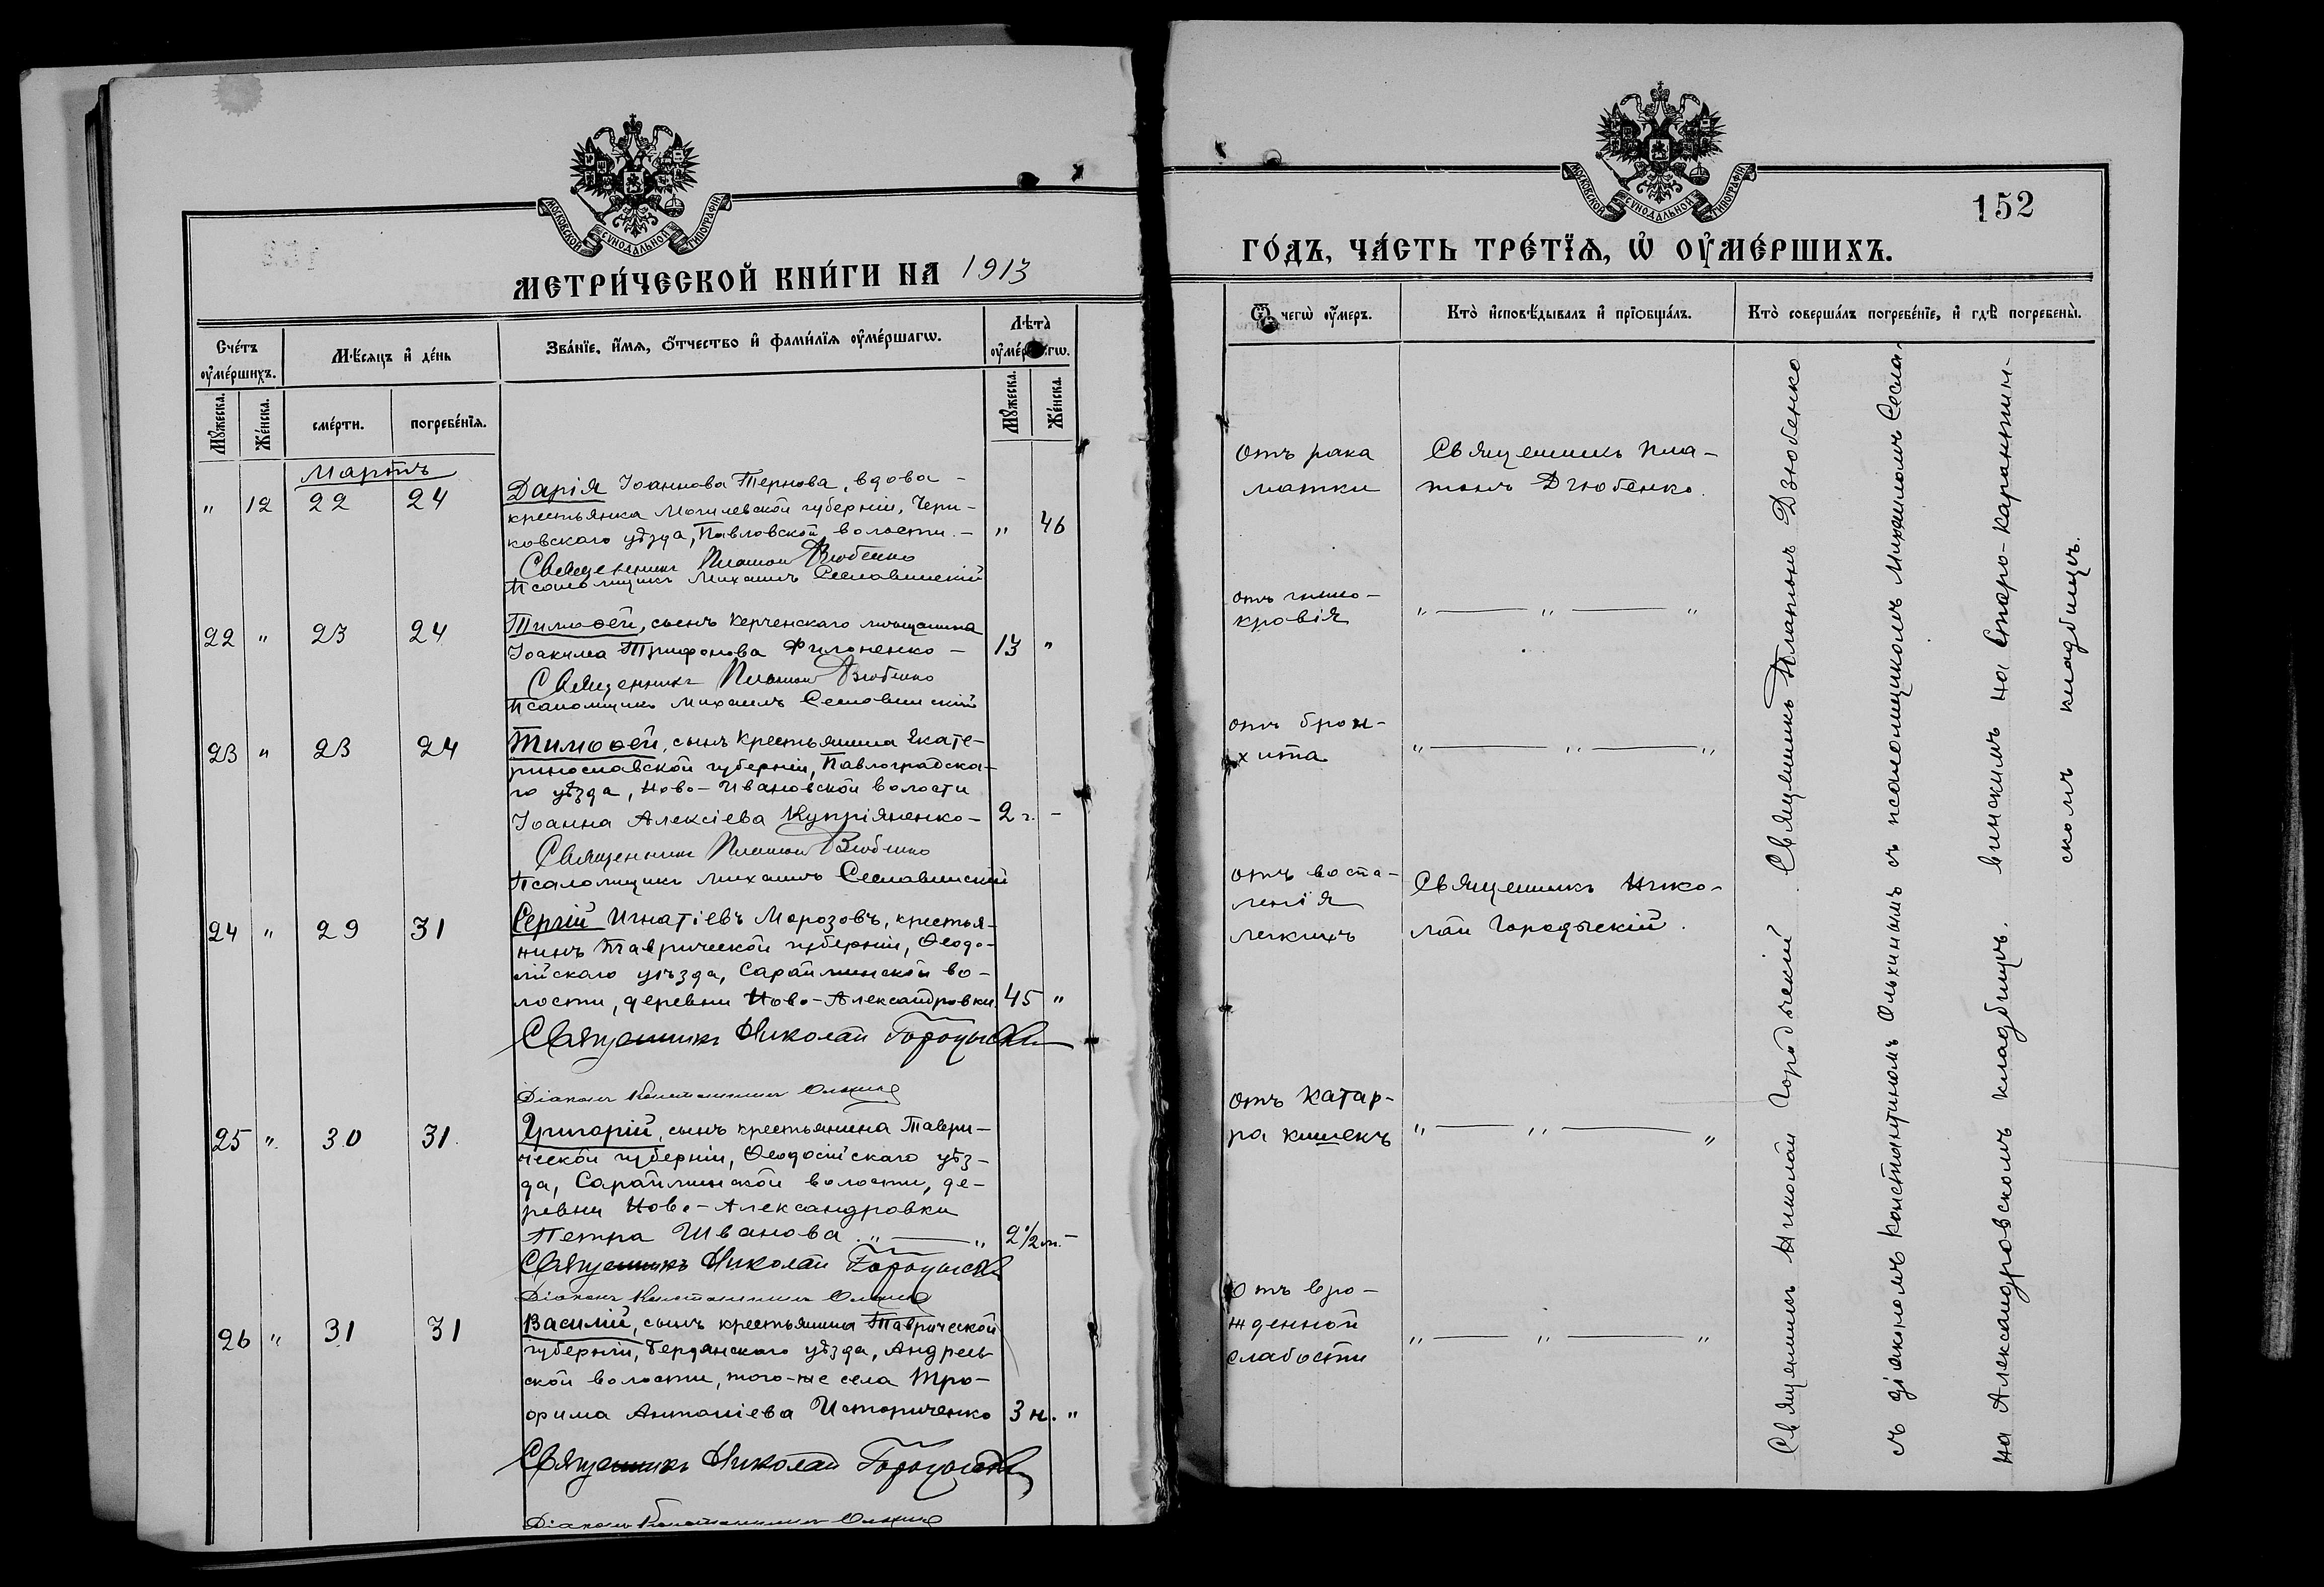 МОСКОВСКОЙ СѴНОДАЛЬНОЙ ТИПОГРАФІИ
МЕТРИ́ЧЕСКОЙ КНИ́ГИ НА 1913
Сче́тъ оу҆ме́ршихъ.
Мѣ́сяцъ и҆ де́нь
Зва́нїе, и҆́мѧ, ѻ҆́тчество и҆ фами́лїѧ оу҆ме́ршагѡ.
Лѣ́та̀
Мꙋ́жеска.
Же́нска.
сме́рти.
погребе́нїѧ.
Мꙋ́жеска.
Же́нска.
Мартъ
" 12 22 24
Дарія Іоаннова Тернова, вдова -
крестьянка Могилевской губерніи, Чери-
ковскаго уѣзда, Павловской волости. - " 46
Священникъ Платон Дзюбенко
Псаломщикъ Михаилъ Сеславинскій
22 " 23 24
Тимоѳей, сынъ Керченскаго мѣщанина
Іоакима Трифонова Филоненко - 13 "
Священникъ Платон Дзюбенко
Псаломщикъ Михаилъ Сеславинскій
23 " 23 24
Тимоѳей, сынъ Крестьянина Екате-
ринославской губерніи, Павлоградска-
го уѣзда, Ново-Ивановской волости
Іоанна Алексіева Купріяненко - 2 г. -
Священникъ Платон Дзюбенко
Псаломщикъ Михаилъ Сеславинскій
24 " 29 31
Сергій Игнатіевъ Морозовъ, крестья-
нинъ Таврической губерніи, Ѳеодо-
сійскаго уѣзда, Сарайминской во-
лости, деревни Ново-Александровки. 45 "
Священникъ Николай Городыскій
Діаконъ Константинъ Олькинъ
25 " 30 31.
Григорій, сынъ крестьянина Таври-
ческой губерніи, Ѳеодосійскаго уѣз-
да, Сарайминской волости, де-
ревни Ново-Александровки
Петра Иванова. " — " 2½ м. -
Священникъ Николай Городыскій
Діаконъ Константинъ Олькинъ
26 " 31 31
Василій, сынъ крестьянина Таврической
губерніи, Бердянскаго уѣзда, Андреев
ской волости, того-же села Тро-
фима Антоніева Историченко 3 н. "
Священникъ Николай Городыскій
Діаконъ Константинъ Олькинъ
МОСКОВСКОЙ СѴНОДАЛЬНОЙ ТИПОГРАФІИ
152
ГО́ДЪ, ЧА́СТЬ ТРЕ́ТЇѦ, Ѡ҆ ОУ҆МЕ́РШИХЪ.
Ѿ чегѡ̀ оу҆́меръ.
Кто̀ и҆сповѣ́дывалъ и҆ прїѡбща́лъ.
Кто̀ соверша́лъ погребе́нїе, и҆ гдѣ̀ погребены̀.
отъ рака
матки
Священникъ Пла-
тонъ Дзюбенко.
отъ мало-
кровія
" — " — "
отъ брон-
хита
" — " — "
отъ воспа-
ленія
легкихъ
Священникъ Нико-
лай Городыскій.
отъ катар-
ра кишекъ
" — " — "
Отъ вро-
жденной
слабости
" — " — "
Священникъ Николай Городыскій
съ діакономъ Константиномъ Олькинымъ
на Александровскомъ кладбищѣ.
Священникъ Платонъ Дзюбенко
съ псаломщикомъ Михаиломъ Сесла-
винскимъ на Старо-Карантин-
скомъ кладбищѣ.